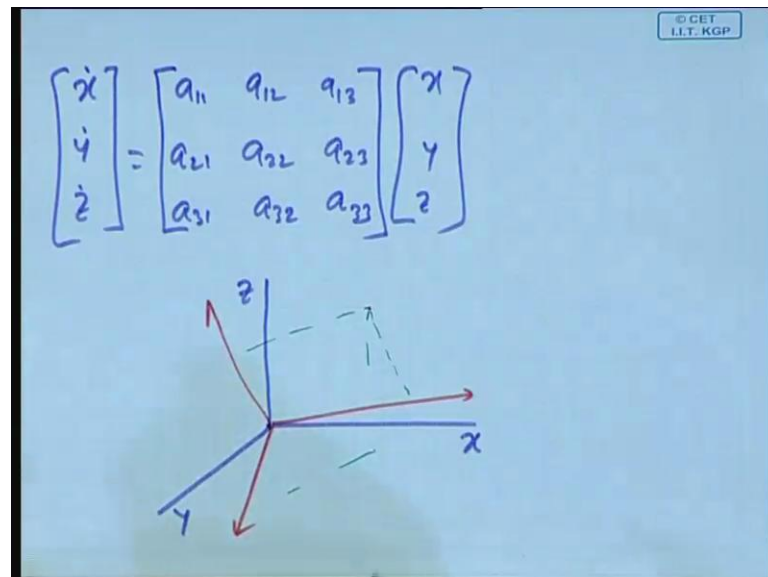 © CET
I.I.T. KGP
ẋ a₁₁ a₁₂ a₁₃ x
ẏ = a₂₁ a₂₂ a₂₃ y
ż a₃₁ a₃₂ a₃₃ z
z
x
y